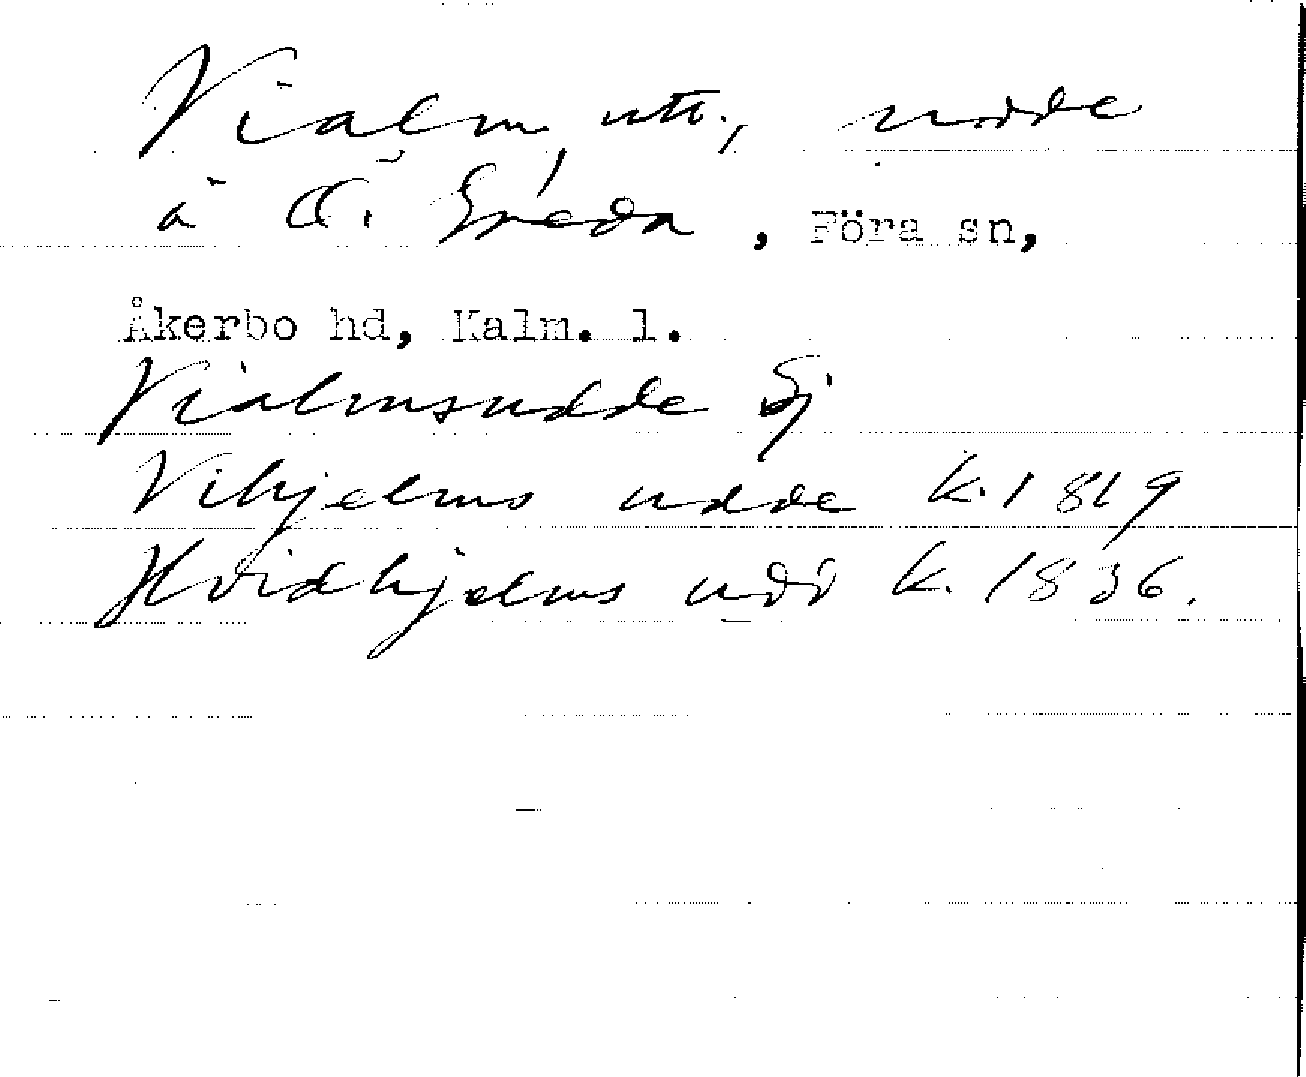 Vialm, utt., udde
å Ö. Greda, Föra sn,
Åkerbo hd, Kalm. l.
Vialmsudde Ej
Vihjelms udde k. 1819
Hvidhjelms udd k. 1836.